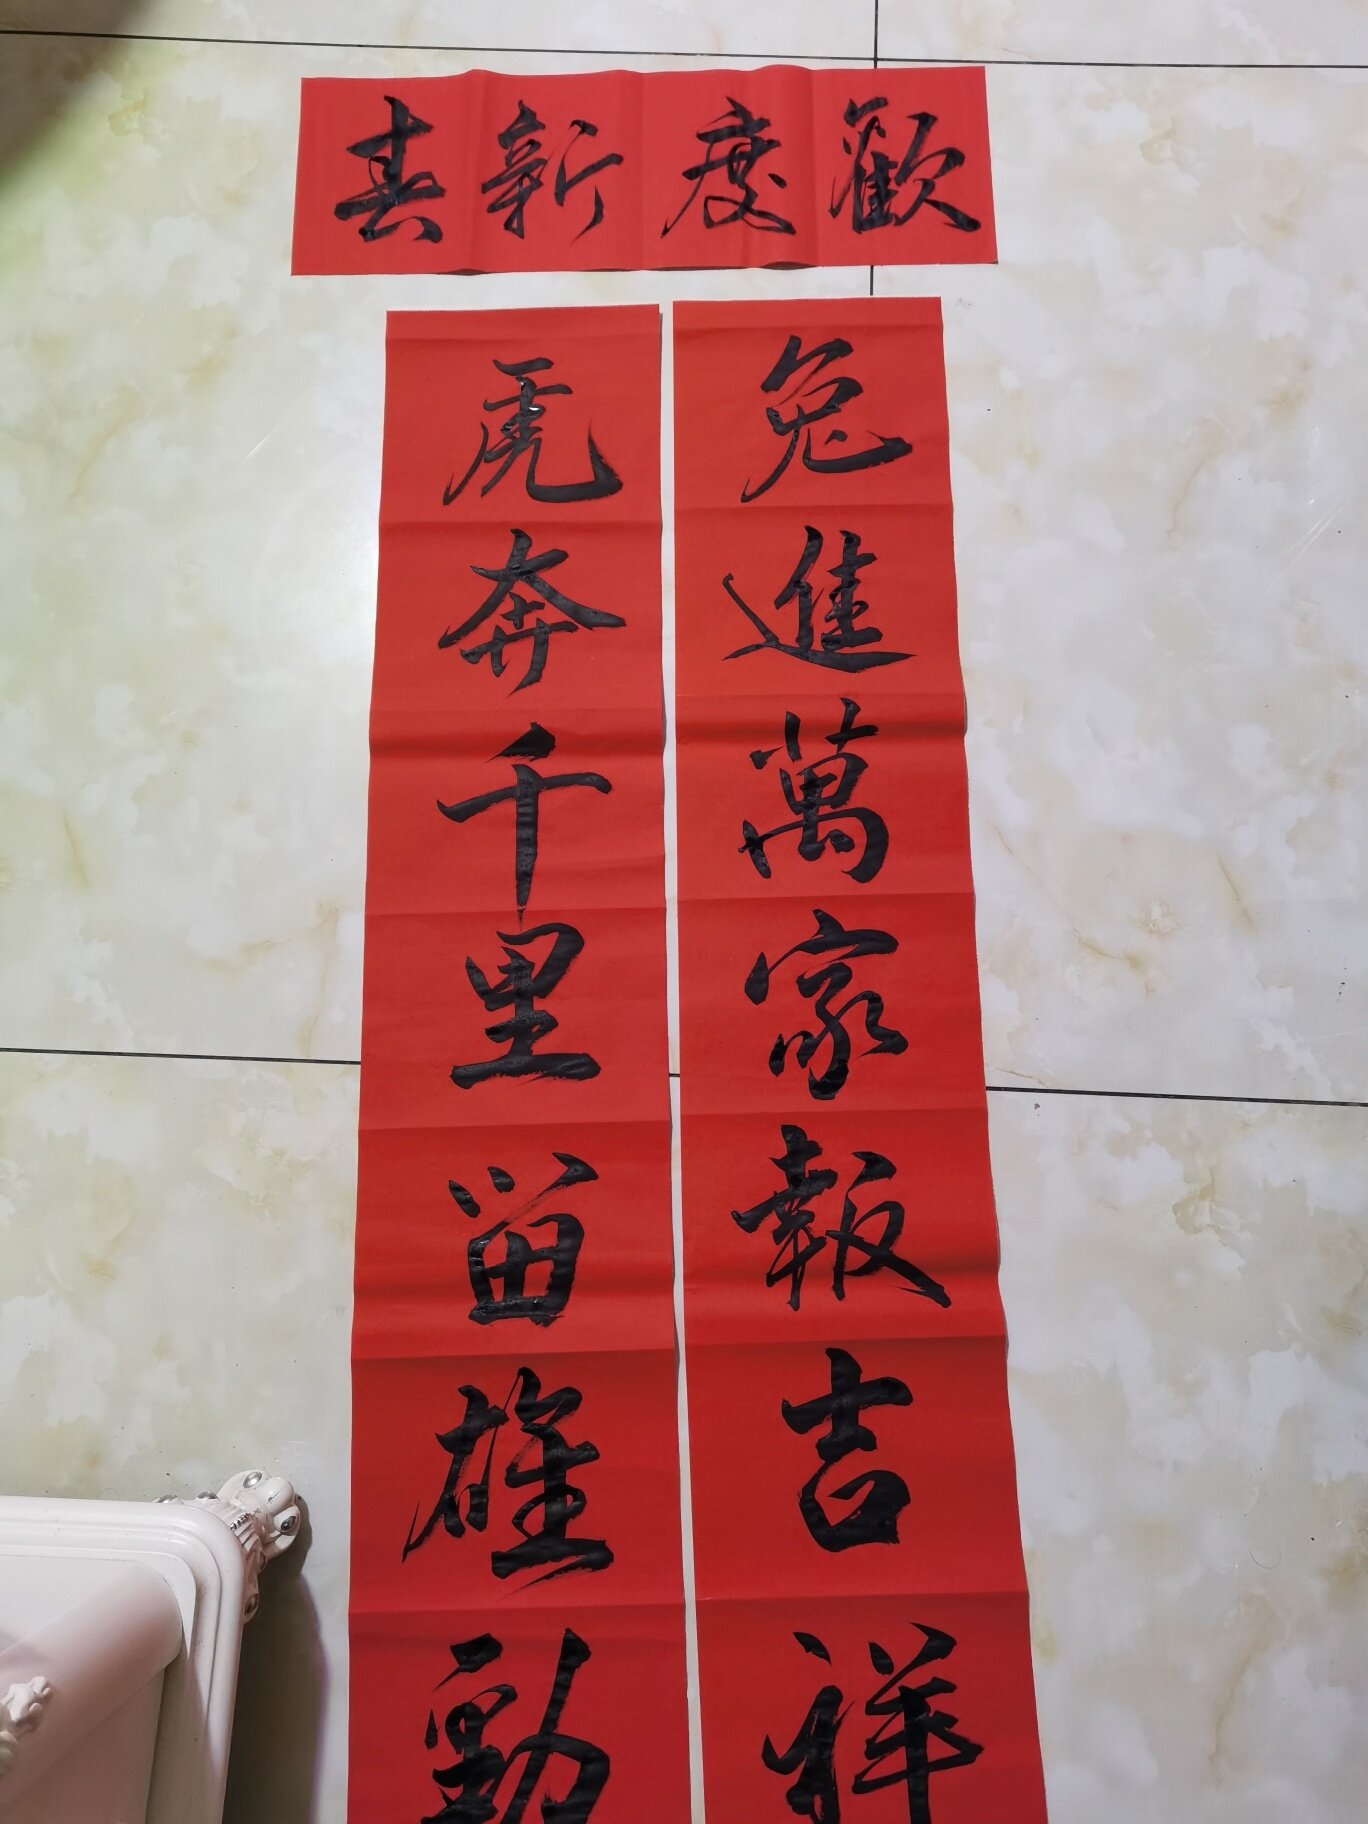 歡度新春
兔進萬家報吉祥
虎奔千里留雄勁